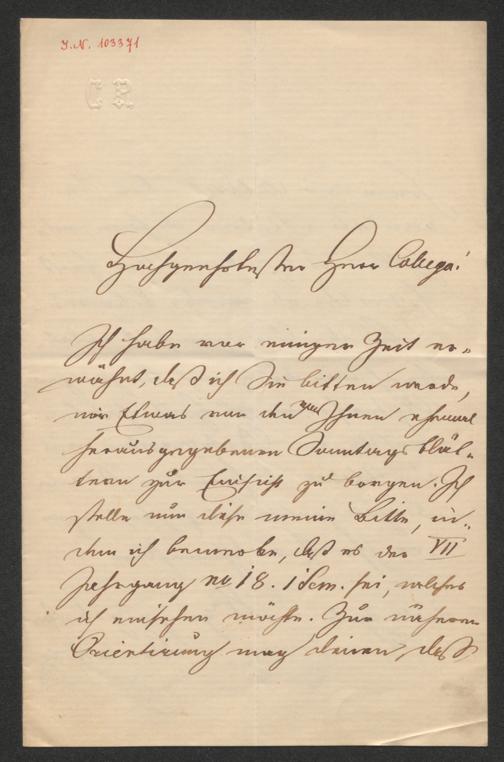 I.N. 103371
C R
Hochgeehrtester Herr Collega!
Ich habe vor einiger Zeit er-
wähnt, daß ich Sie bitten werde,
mir Etwas von den von Ihnen ehemal
herausgegebenen Sonntagsblät-
tern zur Einsicht zu borgen. Ich
stelle nun diese meine Bitte, in-
dem ich bemerke, daß es der VII
Jahrgang no 18. 1 Sem. sei, welchen
ich einsehen möchte. Zur näheren
Orientirung mag dienen, daß